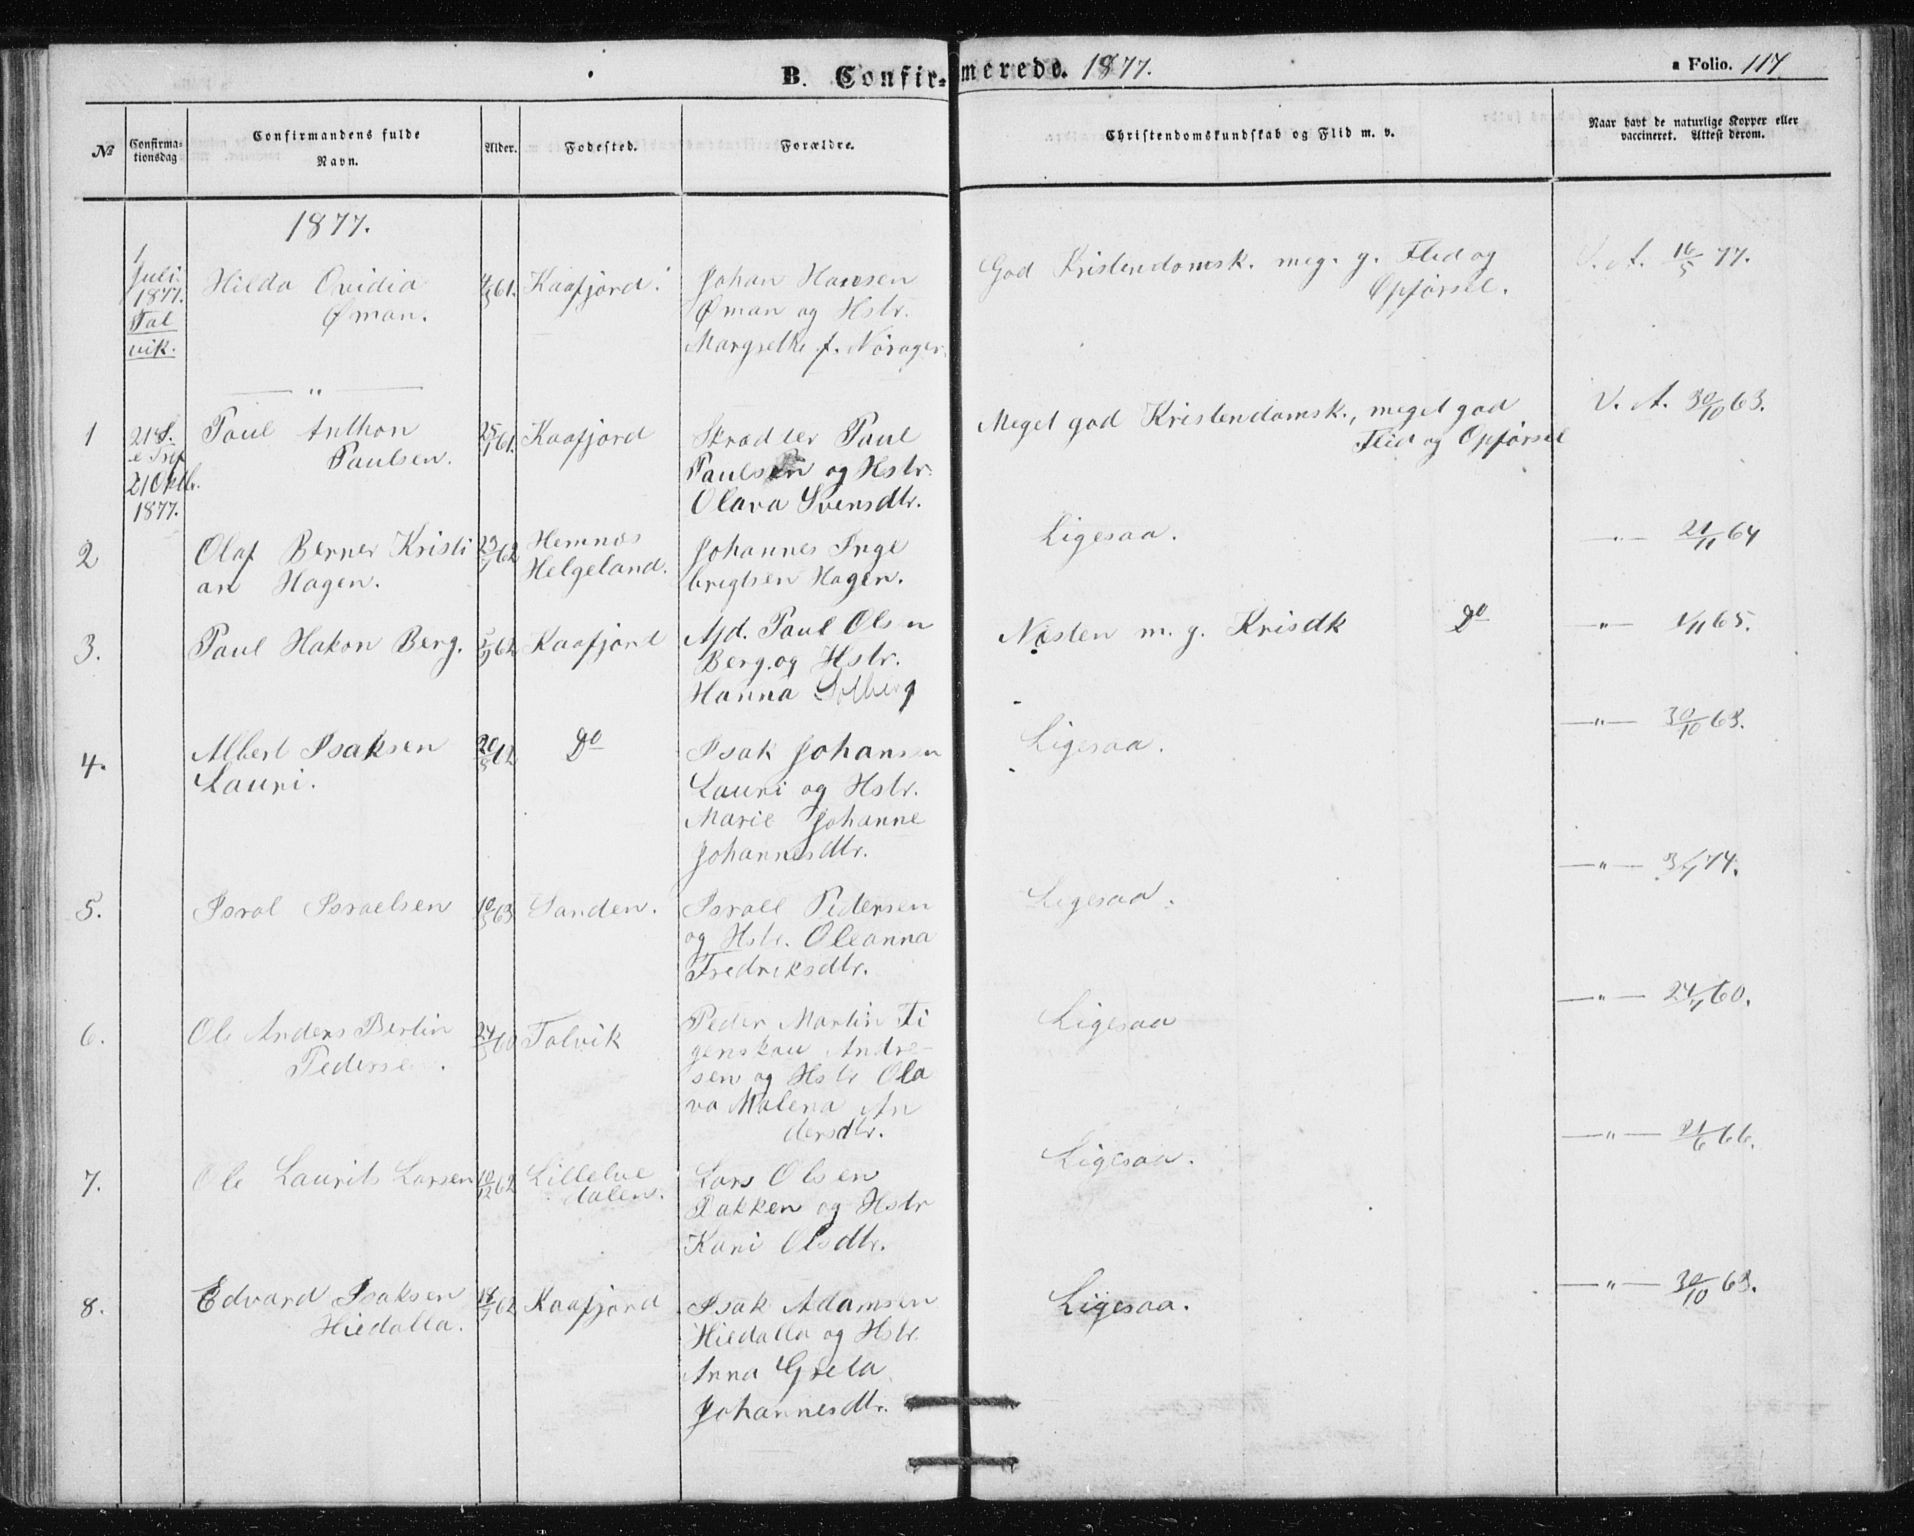 B. Confirmerede. 1877.
a Folio. 117
№
Confirma-
tionsdag
Confirmandens fulde
Navn.
Alder.
Fødested.
Forældre.
Christendomskundskab og Flid m. v.
Naar havt de naturlige Kopper eller
vaccineret. Attest derom.
1877.
1
Juli
1877.
Tal
vik.
Hilda Ovidia
Øman.
61.
Kaafjord.
Johan Hansen
Øman og Hstr.
f. Norager.
God Kristendomsk. meg. g. Flid og
Opførsel.
V. A. 16/5 77.
— " —
1
21 S.
e Trif
21 Oktb.
1877.
Paul Anthon
Paulsen.
25/1 61.
Kaafjord
Skrædder Paul
Paulsen og Hstr.
Olava Svensdtr.
Meget god Kristendomsk., meget god
Flid og Opførsel
V. A. 30/10 63.
2
Olaf Berner Kristi
an Hagen.
62
Hemnæs
Helgeland.
Johannes Inge
brigtsen Hagen.
Ligesaa.
— " — 21/11 64
3.
Paul Hakon Berg.
62
Kaafjord
Afd. Paul Olsen
Berg. og Hstr.
Hanna Solberg
Næsten m. g. Krisdk Do
— " — 1/11 65.
4.
Albert Isaksen
Lauri.
62
Do
Isak Johansen
Lauri og Hstr.
Marie Johanne
Johannesdtr.
Ligesaa.
— " — 30/10 63.
5.
Isral Israelsen
63
Sanden.
Israel Pedersen
og Hstr. Oleanna
Fredriksdtr.
Ligesaa.
— " — 74.
6.
Ole Anders Bertin
Pedersen.
60
Talvik
Peder Martin Ti
genskau Andre-
sen og Hstr Ola
va Malena An
dersdtr.
Ligesaa
— " — 60.
7.
Ole Laurits Larsen
10/12 62
Lilleelve
dalen.
Lars Olsen
Bakken og Hstr
Kari Olsdtr.
Ligesaa.
— " — 21/6 66.
8.
Edvard Isaksen
Hiedalla.
62
Kaafjord
Isak Adamsen
Hiedalla og Hstr.
Anna Greta
Johannesdtr.
Ligesaa.
— " — 30/10 63.